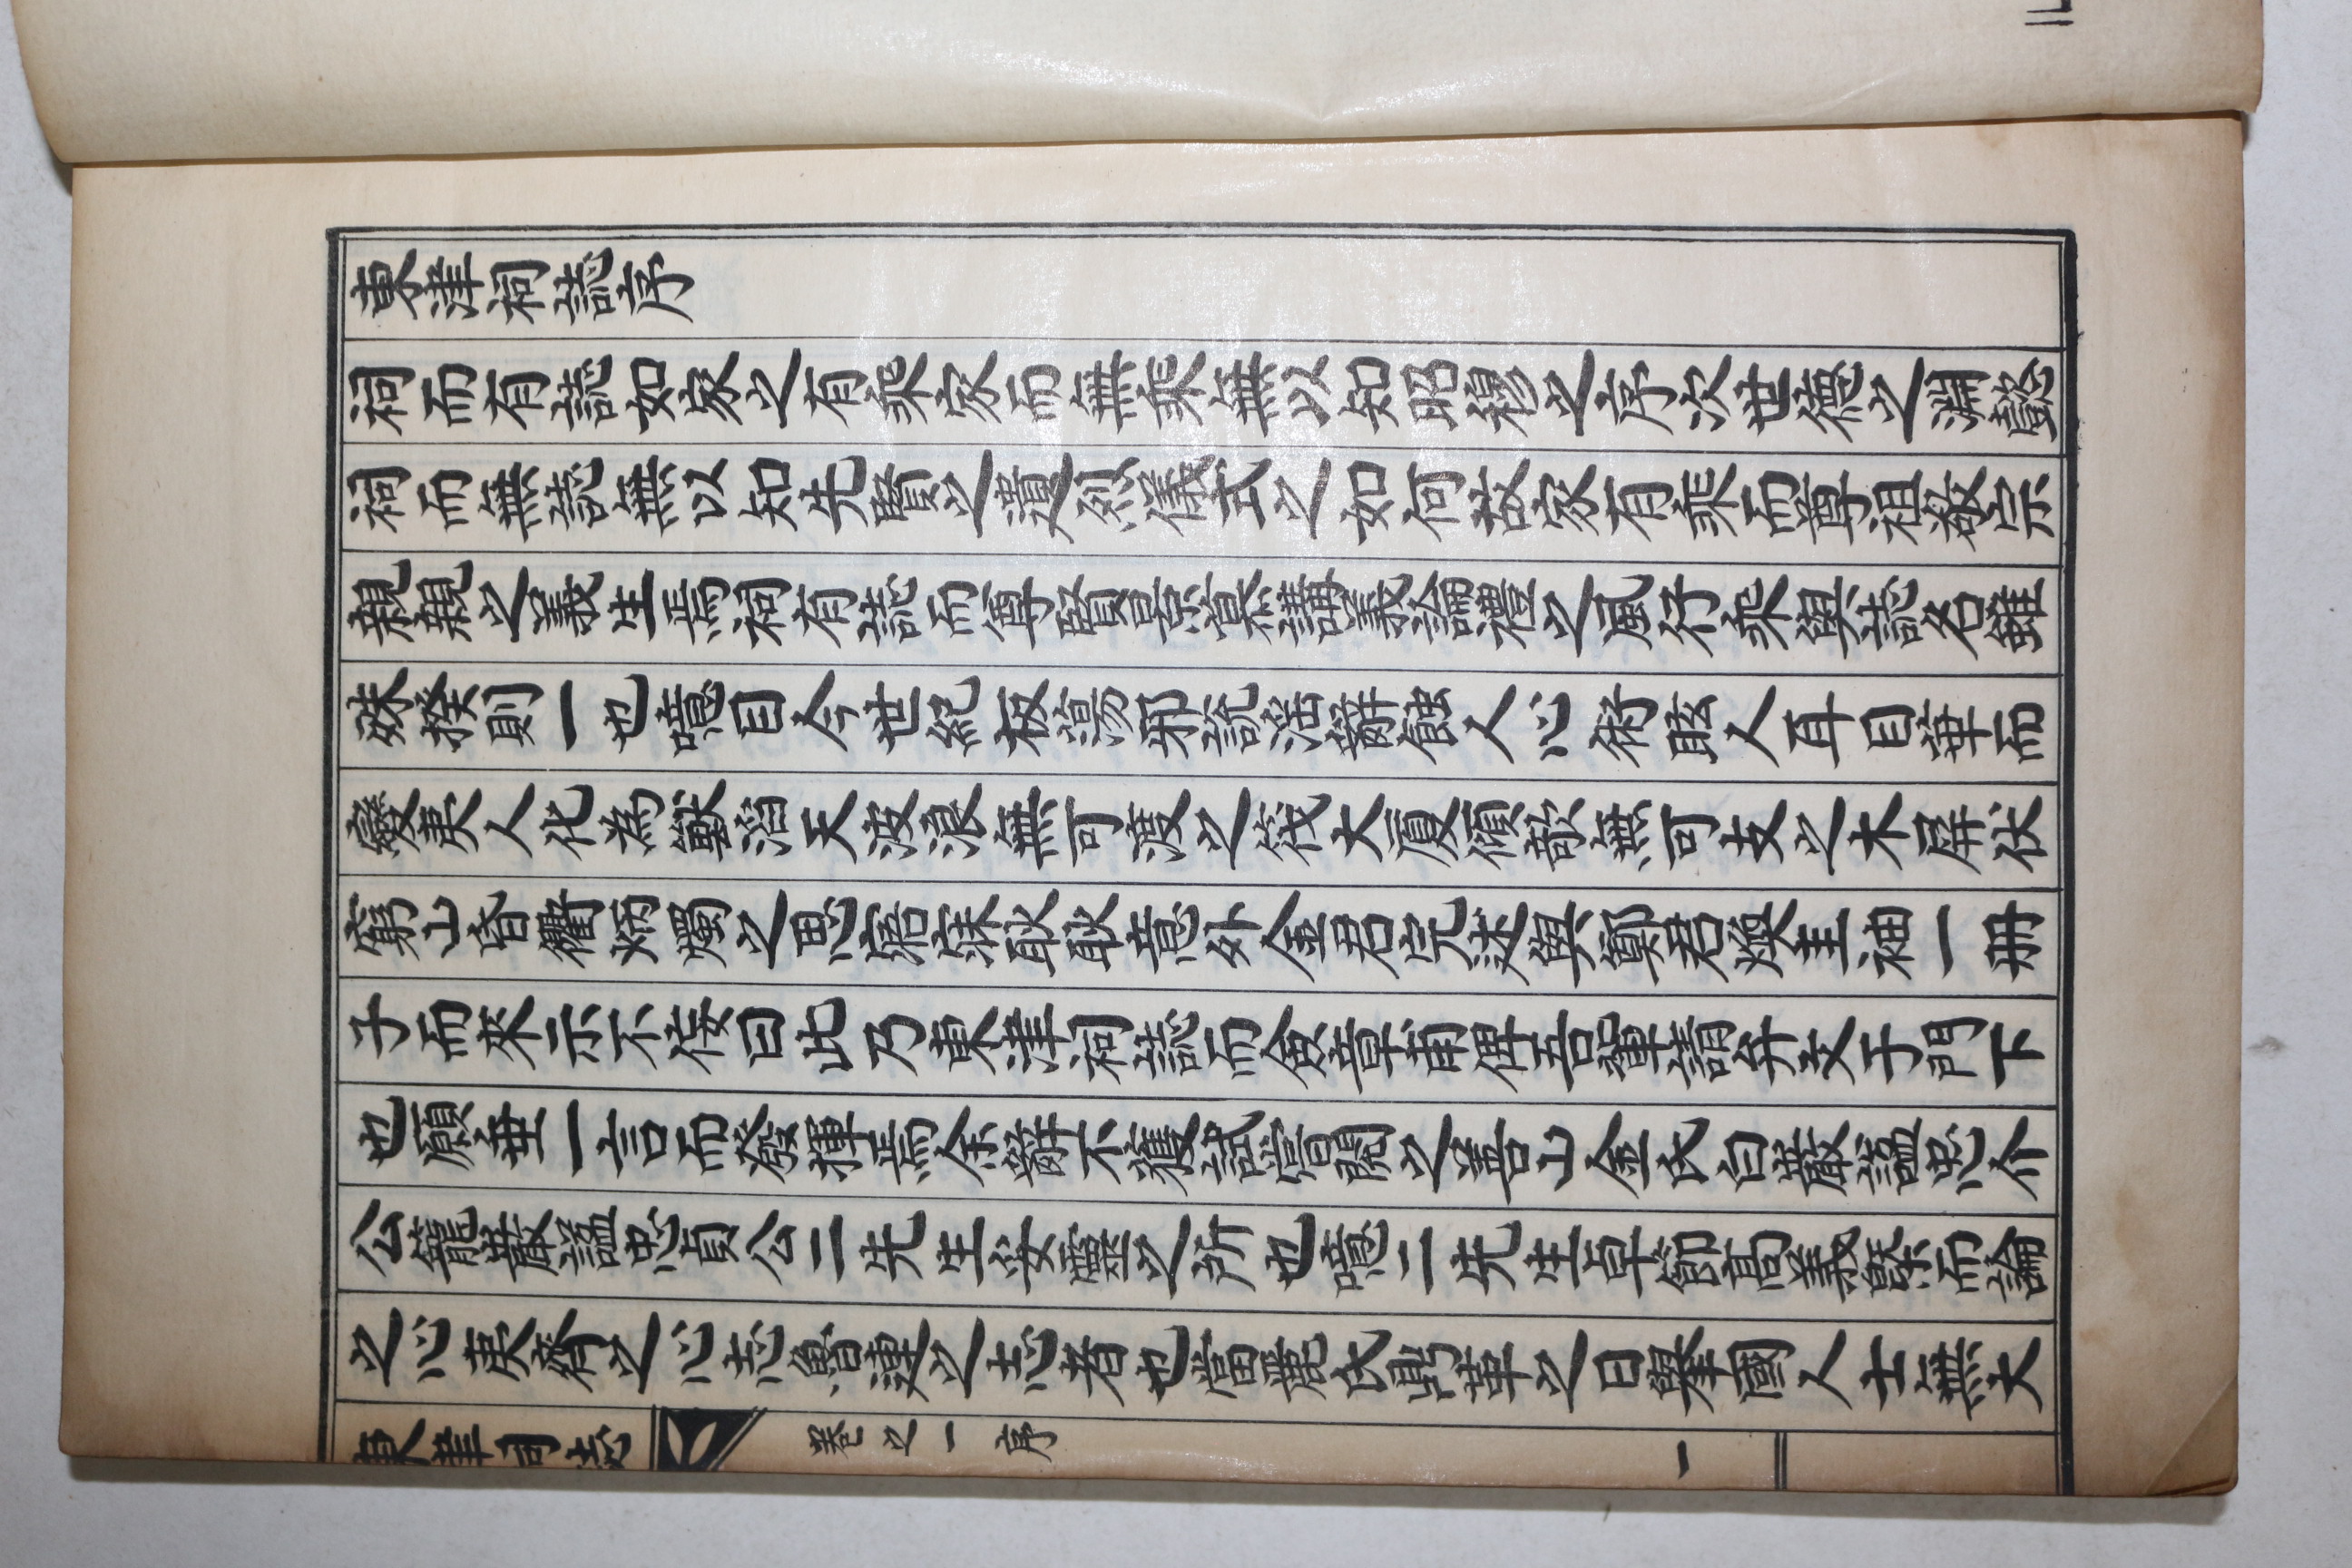 東津祠誌序
祠而有誌如家之有乘家而無乘無以知昭穆之序次世德之淵懿
祠而無誌無以知先賢之遺烈儀式之如何故家有乘而尊祖敬宗
親親之義生焉祠有誌而尊賢景慕講義論禮之風作乘與誌名雖
殊揆則一也噫目今世級板蕩邪說淫辭蝕人心術眩人耳目華而
變夷人化爲獸滔天波浪無可渡之筏大厦傾欹無可支之木屛伏
窮山昏衢炳燭之思寤寐耿耿意外金君完述與鄭君燦圭袖一冊
子而來示不侫曰此乃東津祠誌而僉章甫俾吾輩請弁文于門下
也願垂一言而發揮焉余辭不獲試管閱之善山金氏白巖諡忠介
公籠巖諡忠貞公二先生妥靈之所也噫二先生卓節高義繇而論
之心夷齊之心志魯連之志者也當麗氏訖華之日擧國人士無大
東津祠誌 卷之一 序 一